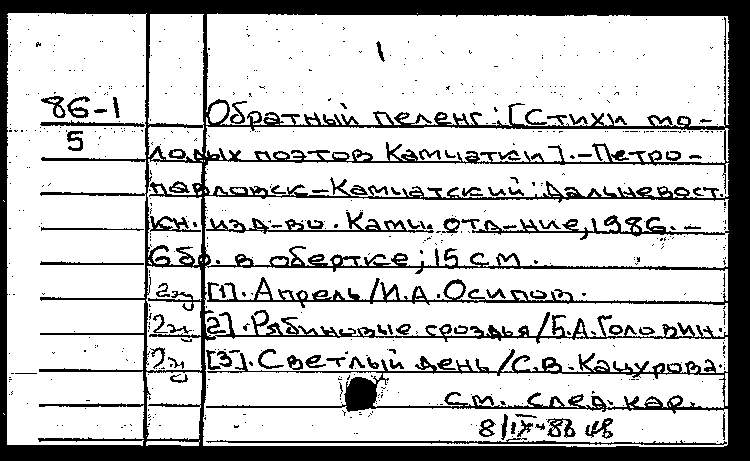 1
86-1
5
Обратный пеленг: [Стихи мо-
лодых поэтов Камчатки]. - Петро-
павловск-Камчатский: Дальневост.
кн. изд-во. Камч. отд-ние, 1986. -
6 бр. в обертке; 15 см.
2эк [1]. Апрель / И.А. Осипов.
2эк [2]. Рябиновые гроздья / Б.А. Головин.
2эк [3]. Светлый день / С.В. Кацурова.
см. след. кар.
8/IX-86